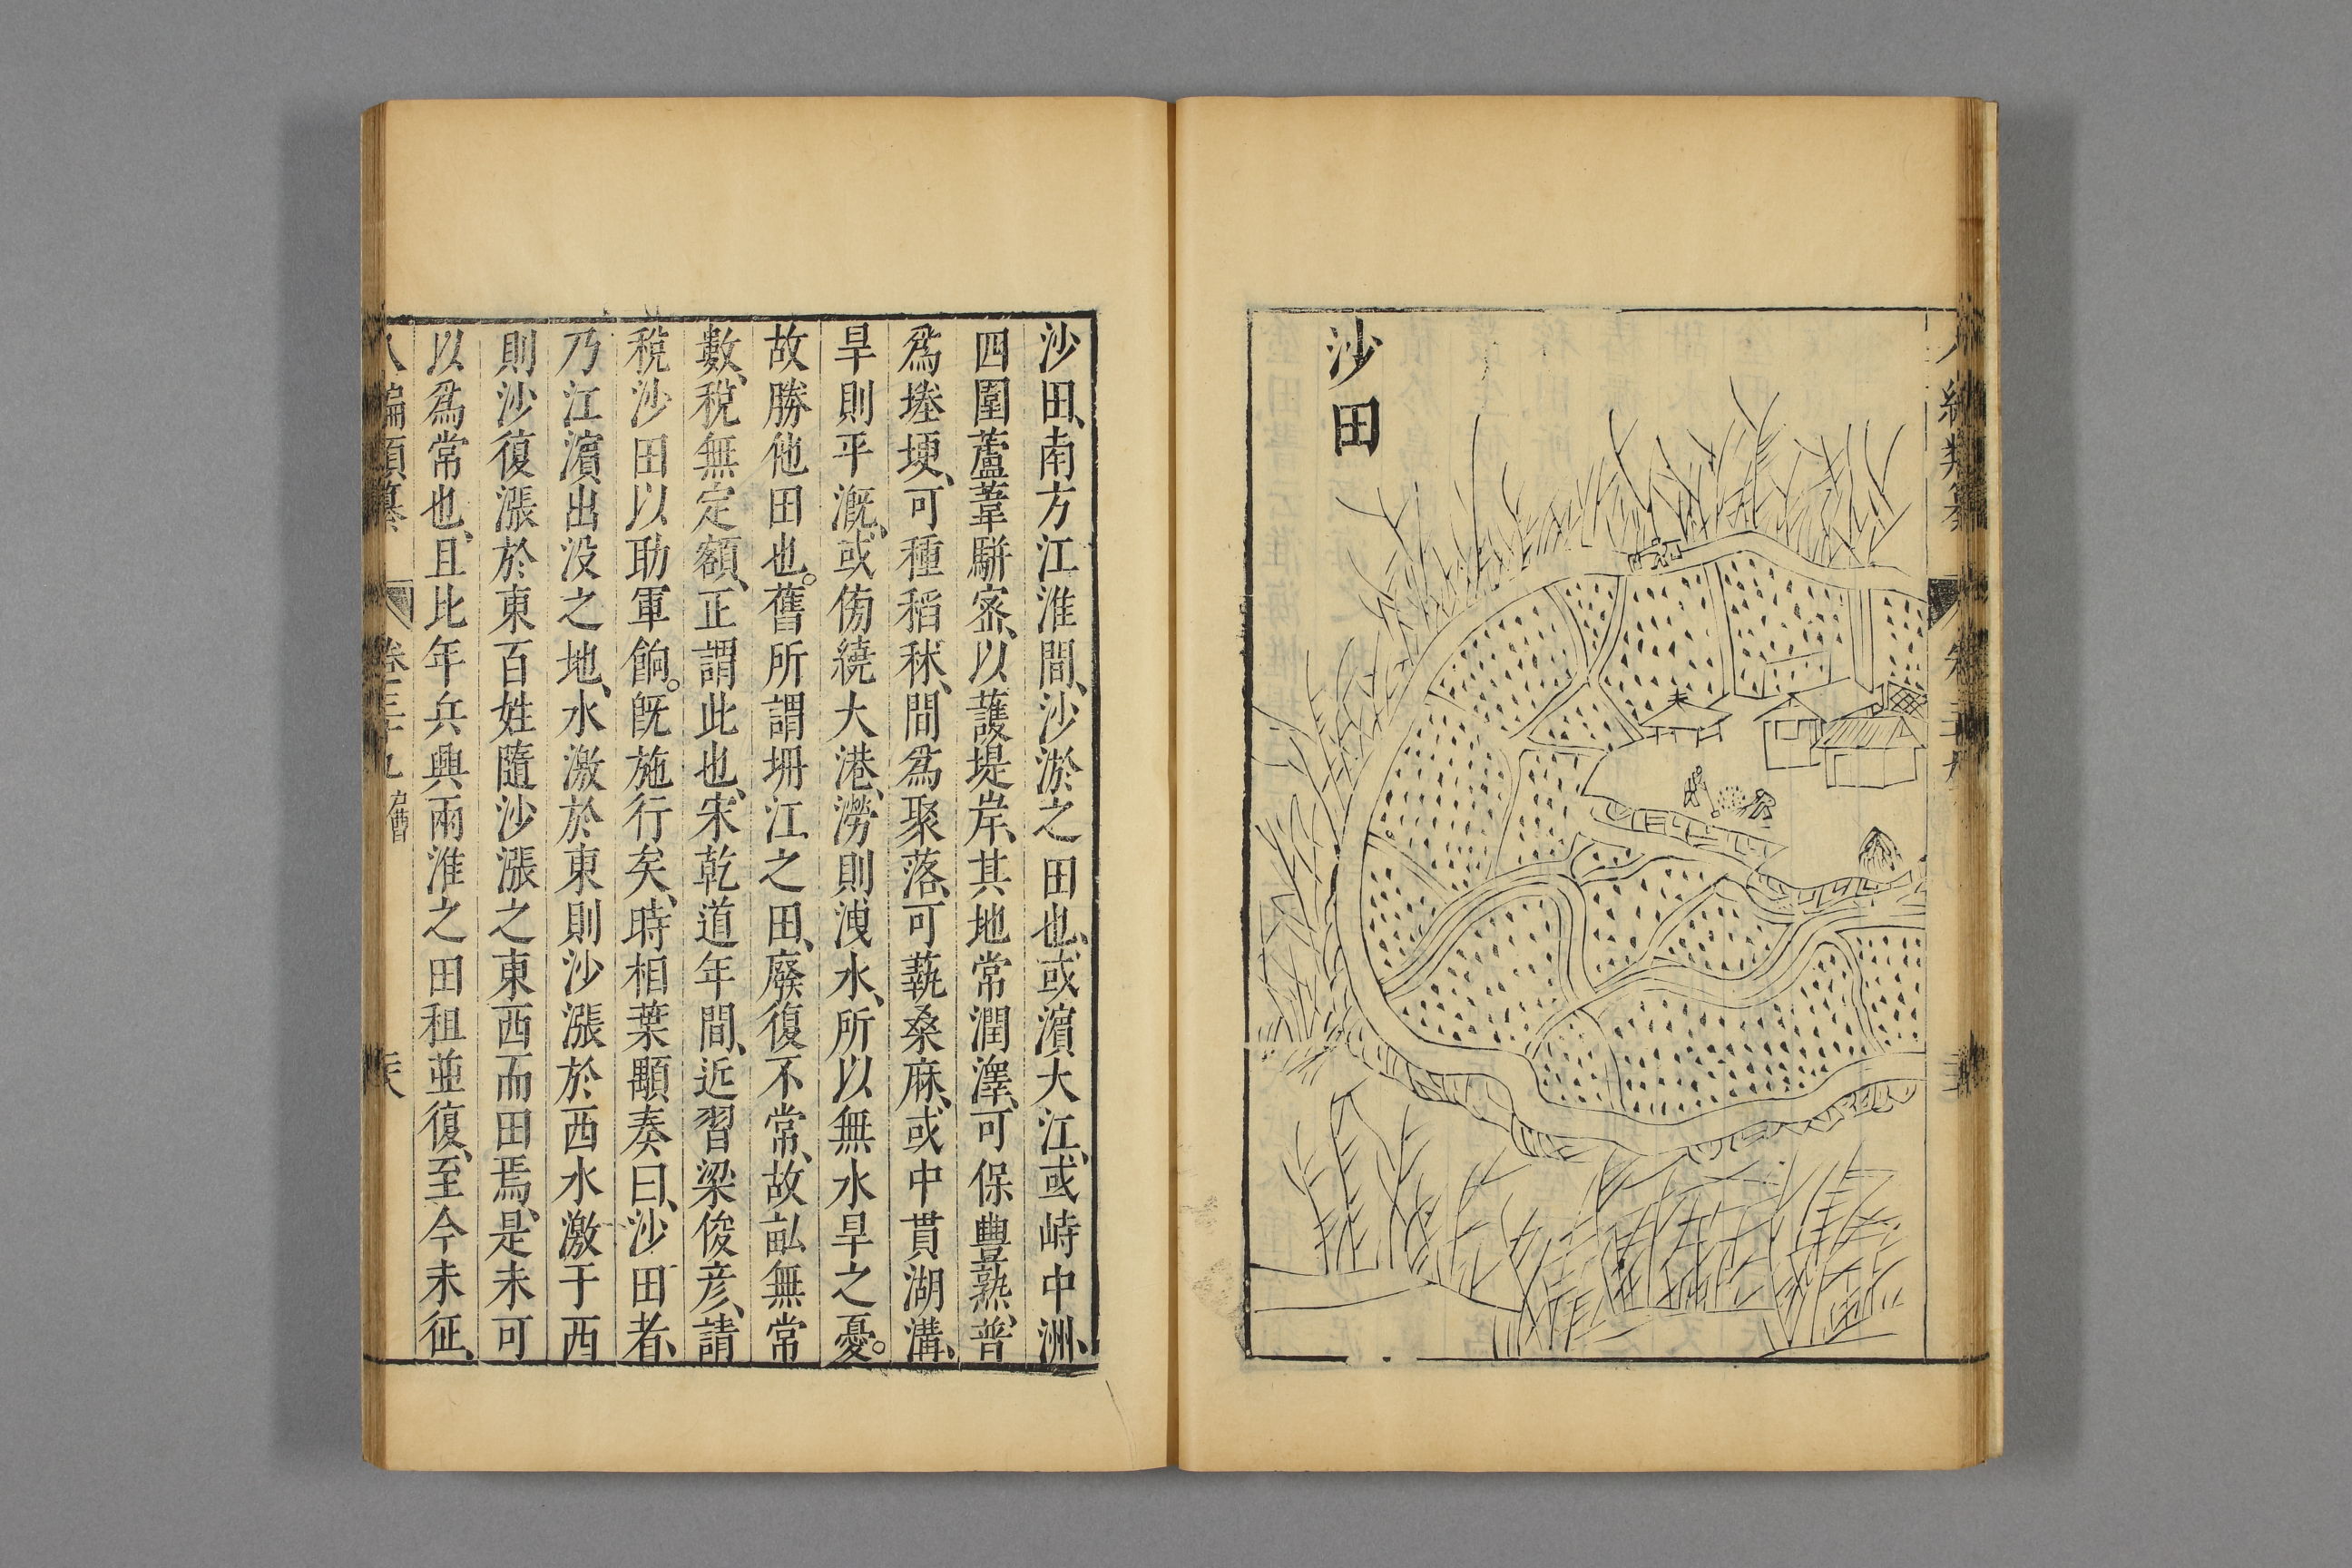 沙田
沙田、南方江淮間、沙淤之田也、或濵大江、或峙中洲、
四圍蘆葦駢宻、以護堤岸、其地常潤澤、可保豐熟、普
爲塍埂、可種稻秫、間爲聚落、可蓺桑麻、或中貫湖溝、
旱則平溉、或傍繞大港、澇則洩水、所以無水旱之憂。
故勝他田也。舊所謂坍江之田、廢復不常、故畆無常
數、稅無定額、正謂此也、宋乾道年間、近習梁俊彦、請
稅沙田以助軍餉。旣施行矣、時相葉顒奏曰、沙田者、
乃江濵出没之地、水激於東則沙漲於西水激于西
則沙復漲於東百姓隨沙漲之東西而田焉、是未可
以爲常也、且比年兵興兩淮之田租並復、至今未征、